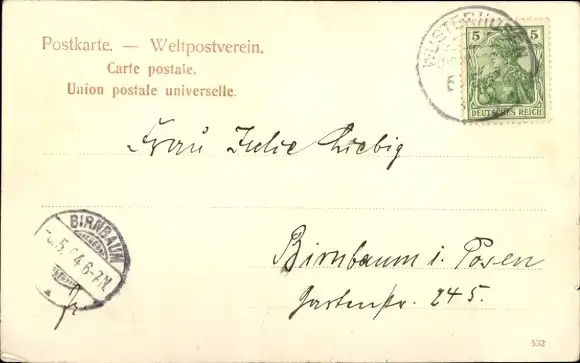 Postkarte. — Weltpostverein.
Carte postale.
Union postale universelle.
WUSTERHUSEN
5 5
DEUTSCHES REICH
Frau Julie Liebig
BIRNBAUM
.5. 4 6-7N.
Birnbaum i. Posen
Gartenstr. 245.
532